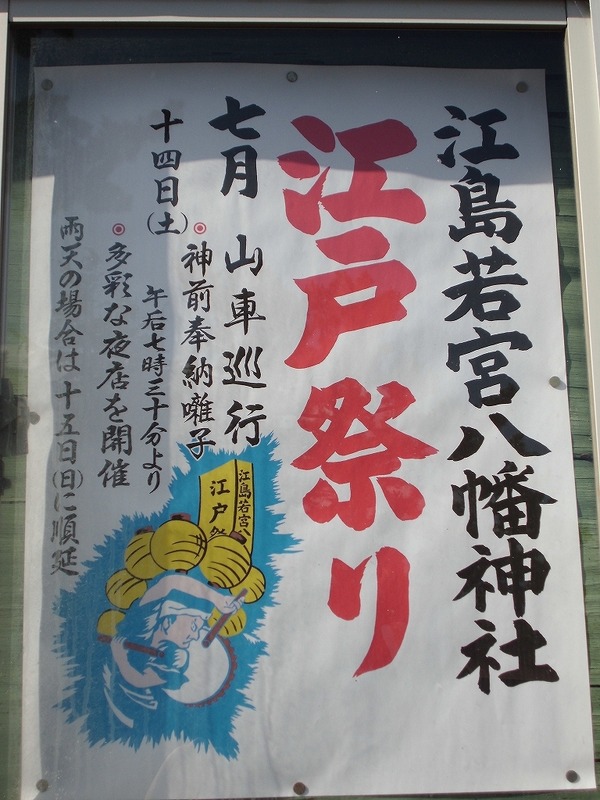 江島若宮八幡神社
江戸祭り
七月 山車巡行
十四日(土)
◎神前奉納囃子
午后七時三十分より
◎多彩な夜店を開催
雨天の場合は十五日(日)に順延
江島若宮八
江戸祭